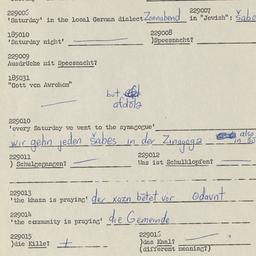 229006 229007
'Saturday' in the local German dialect Zonnabend in "Jewish": Šabes
185010 229008
'Saturday night' )Speesnacht?
229009
Ausdrücke mit Speesnacht?
185031
"Gott von Awrohom"
but
229010
'every Saturday we went to the synagogue'
wir gehn jeden Šabes in der Zinagoga also
229011 229012
) Schulgegangen? Was ist Schulklopfen?
229013
'the khazn is praying' der xazn betet vor
229014
'the community is praying' die Gemeinde
229015 229016
)die Kille? + )das Kaal?
(different meaning?)